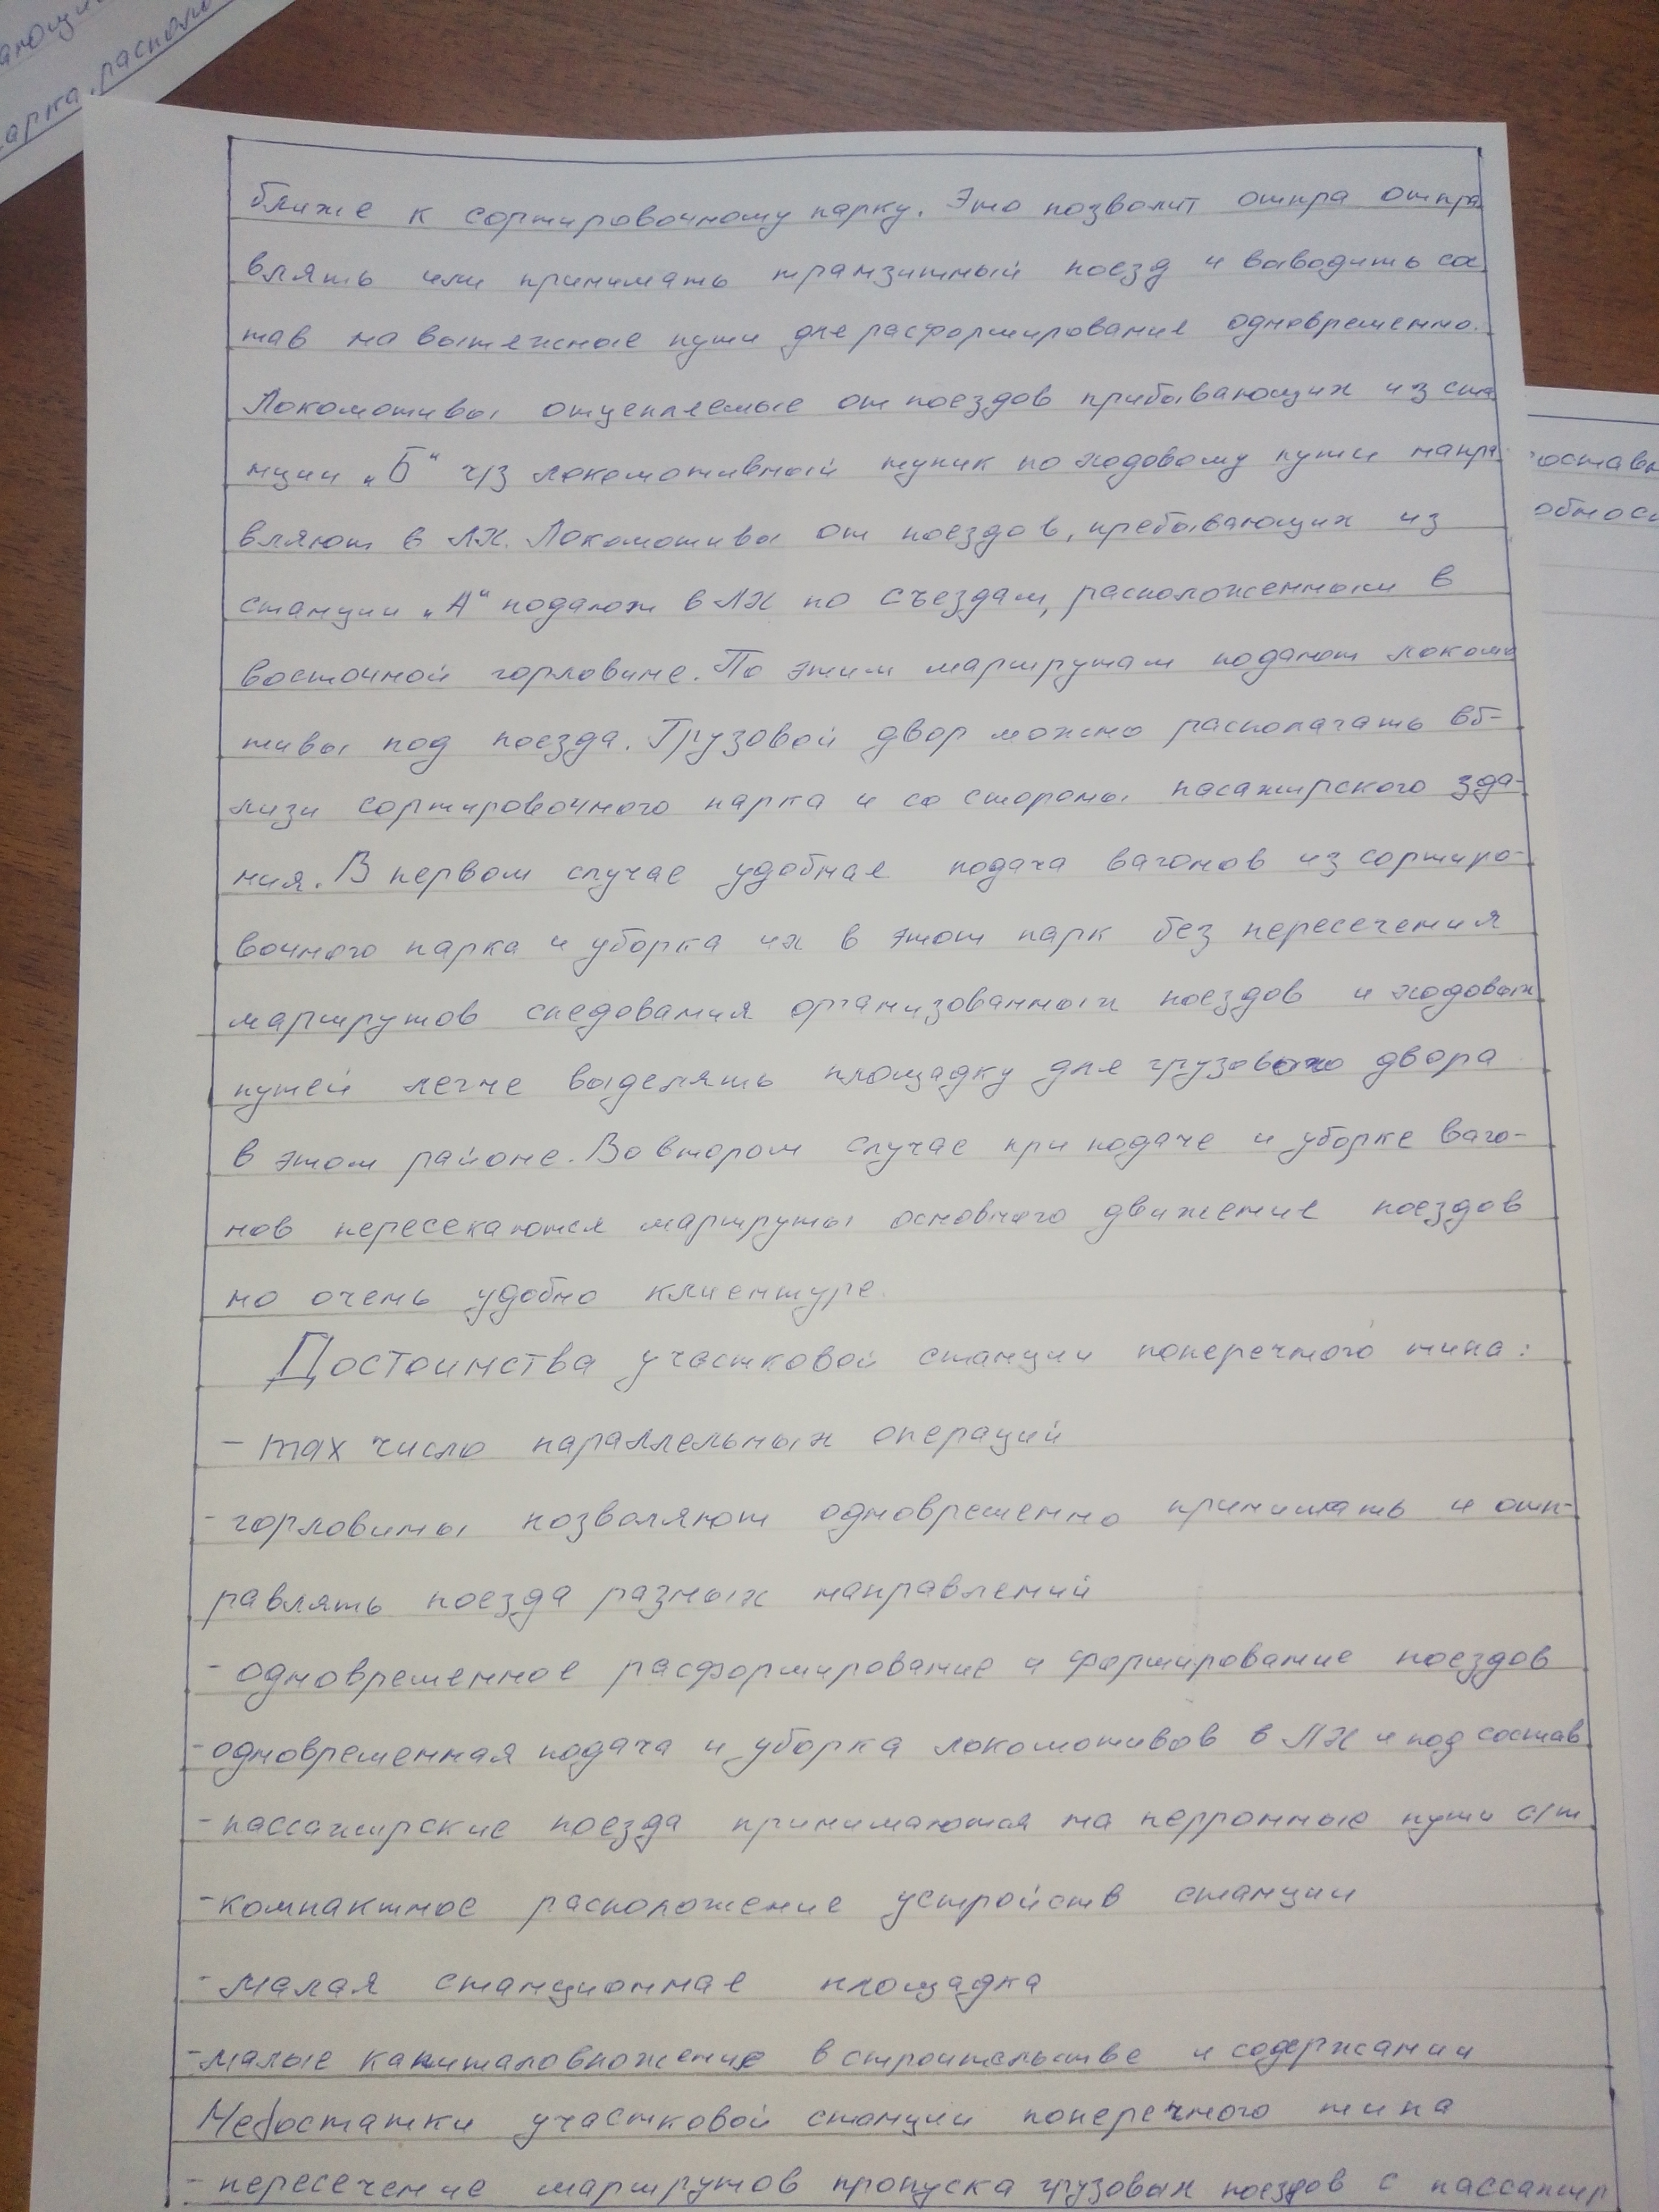 ающи
арка, распол
ближе к сортировочному парку. Это позволит отпра отпра
влять или принимать транзитный поезд и выводить сос
тав на вытяжные пути для расформирование одновременно.
Локомотивы отцепляемые от поездов прибывающих из ста
нции „Б“ ч/з локомотивный тупик по ходовому пути напра
вляют в ЛХ. Локомотивы от поездов, пребывающих из
станции „А“ подают в ЛХ по съездам, расположенным в
восточной горловине. По этим маршрутам подают локомо
тивы под поезда. Грузовой двор можно располагать вб-
лизи сортировочного парка и со стороны пасажирского зда-
ния. В первом случае удобная подача вагонов из сортиро-
вочного парка и уборка их в этот парк без пересечения
маршрутов следования организованных поездов и ходовых
путей легче выделять площадку для грузового двора
в этом районе. Во втором случае при подаче и уборке ваго-
нов пересекаются маршруты основного движение поездов
но очень удобно клиентуре.
Достоинства участковой станции поперечного типа:
- max число параллельных операций
- горловины позволяют одновременно принимать и отп-
равлять поезда разных направлений
- одновременное расформирование и формирование поездов
- одновременная подача и уборка локомотивов в ЛХ и под состав
- пассажирские поезда принимаются на перронные пути с/т
- компактное расположение устройств станции
- малая станционная площадка
- малые капиталовложение в строительстве и содержании
Недостатки участковой станции поперечного типа
- пересечение маршрутов пропуска грузовых поездов с пассажир
остав
обнос